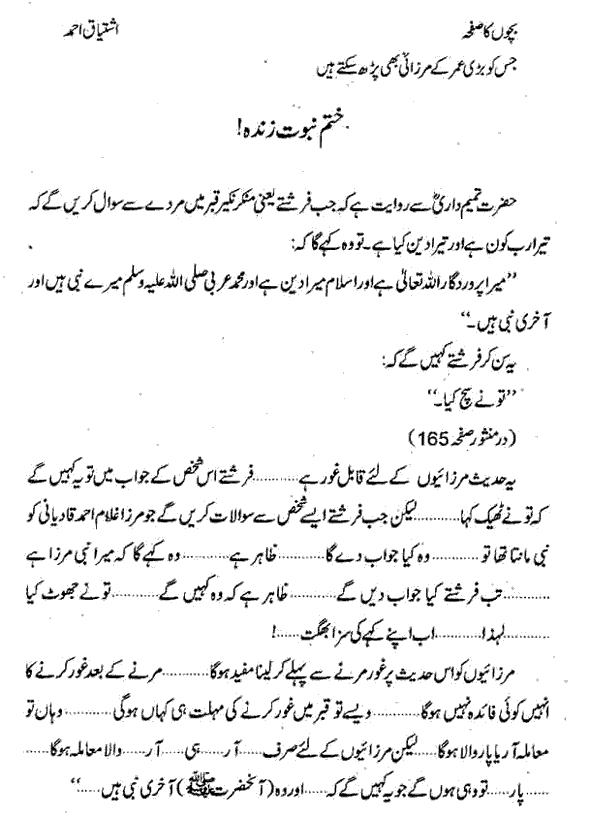 بچوں کا صفحہ اشتیاق احمد
جس کو بڑی عمر کے مرزائی بھی پڑھ سکتے ہیں
ختم نبوت زندہ!
حضرت تمیم داریؓ سے روایت ہے کہ جب فرشتے یعنی منکر نکیر قبر میں مردے سے سوال کریں گے کہ
تیرا رب کون ہے اور تیرا دین کیا ہے۔ تو وہ کہے گا کہ:
”میرا پروردگار اللہ تعالیٰ ہے اور اسلام میرا دین ہے اور محمد عربی صلی اللہ علیہ وسلم میرے نبی ہیں اور
آخری نبی ہیں۔“
یہ سن کر فرشتے کہیں گے کہ:
”تو نے سچ کہا۔“
(درمنثور صفحہ 165)
یہ حدیث مرزائیوں کے لئے قابل غور ہے.......... فرشتے اس شخص کے جواب میں تو یہ کہیں گے
کہ تو نے ٹھیک کہا.......... لیکن جب فرشتے ایسے شخص سے سوالات کریں گے جو مرزا غلام احمد قادیانی کو
نبی مانتا تھا تو.......... وہ کیا جواب دے گا.......... ظاہر ہے.......... وہ کہے گا کہ میرا نبی مرزا ہے
.......... تب فرشتے کیا جواب دیں گے.......... ظاہر ہے کہ وہ کہیں گے.......... تو نے جھوٹ کہا
.......... لہٰذا.......... اب اپنے کہے کی سزا بھگت......!
مرزائیوں کو اس حدیث پر غور مرنے سے پہلے کر لینا مفید ہوگا.......... مرنے کے بعد غور کرنے کا
انہیں کوئی فائدہ نہیں ہوگا.......... ویسے تو قبر میں غور کرنے کی مہلت ہی کہاں ہوگی.......... وہاں تو
معاملہ آر یا پار والا ہوگا.......... لیکن مرزائیوں کے لئے صرف...... آر...... ہی...... آر...... والا معاملہ ہوگا......
...... پار...... تو وہی ہوں گے جو یہ کہیں گے کہ...... اور وہ (آنحضرت ﷺ) آخری نبی ہیں......“